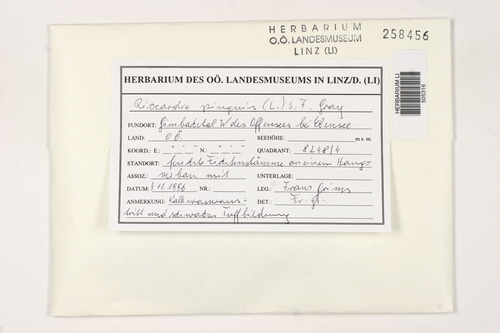 HERBARIUM
O.Ö. LANDESMUSEUM
LINZ (LI)
258456
HERBARIUM LI
505316
HERBARIUM DES OÖ. LANDESMUSEUMS IN LINZ/D. (LI)
Riccardia pinguis (L.) S. F. Gray
FUNDORT: Gimbachtal W des Offensees bei Ebensee
LAND: OÖ SEEHÖHE: m s.m.
KOORD.: E.: ° ' " N.: ° ' " QUADRANT: 8248/4
STANDORT: feuchte Fichtenstämme an einem Hang-
ASSOZ.: mit UNTERLAGE:
DATUM: 11.1996 NR.: LEG.: Franz Grims
ANMERKUNG: Kalkwasseraus- DET.: Fr. Gr.
tritt und schwacher Tuffbildung